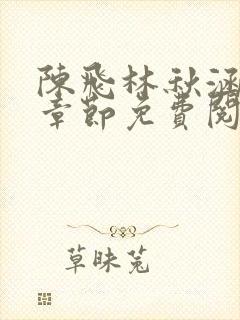 陳飛林秋涵
章節免費閱
草昧蒐